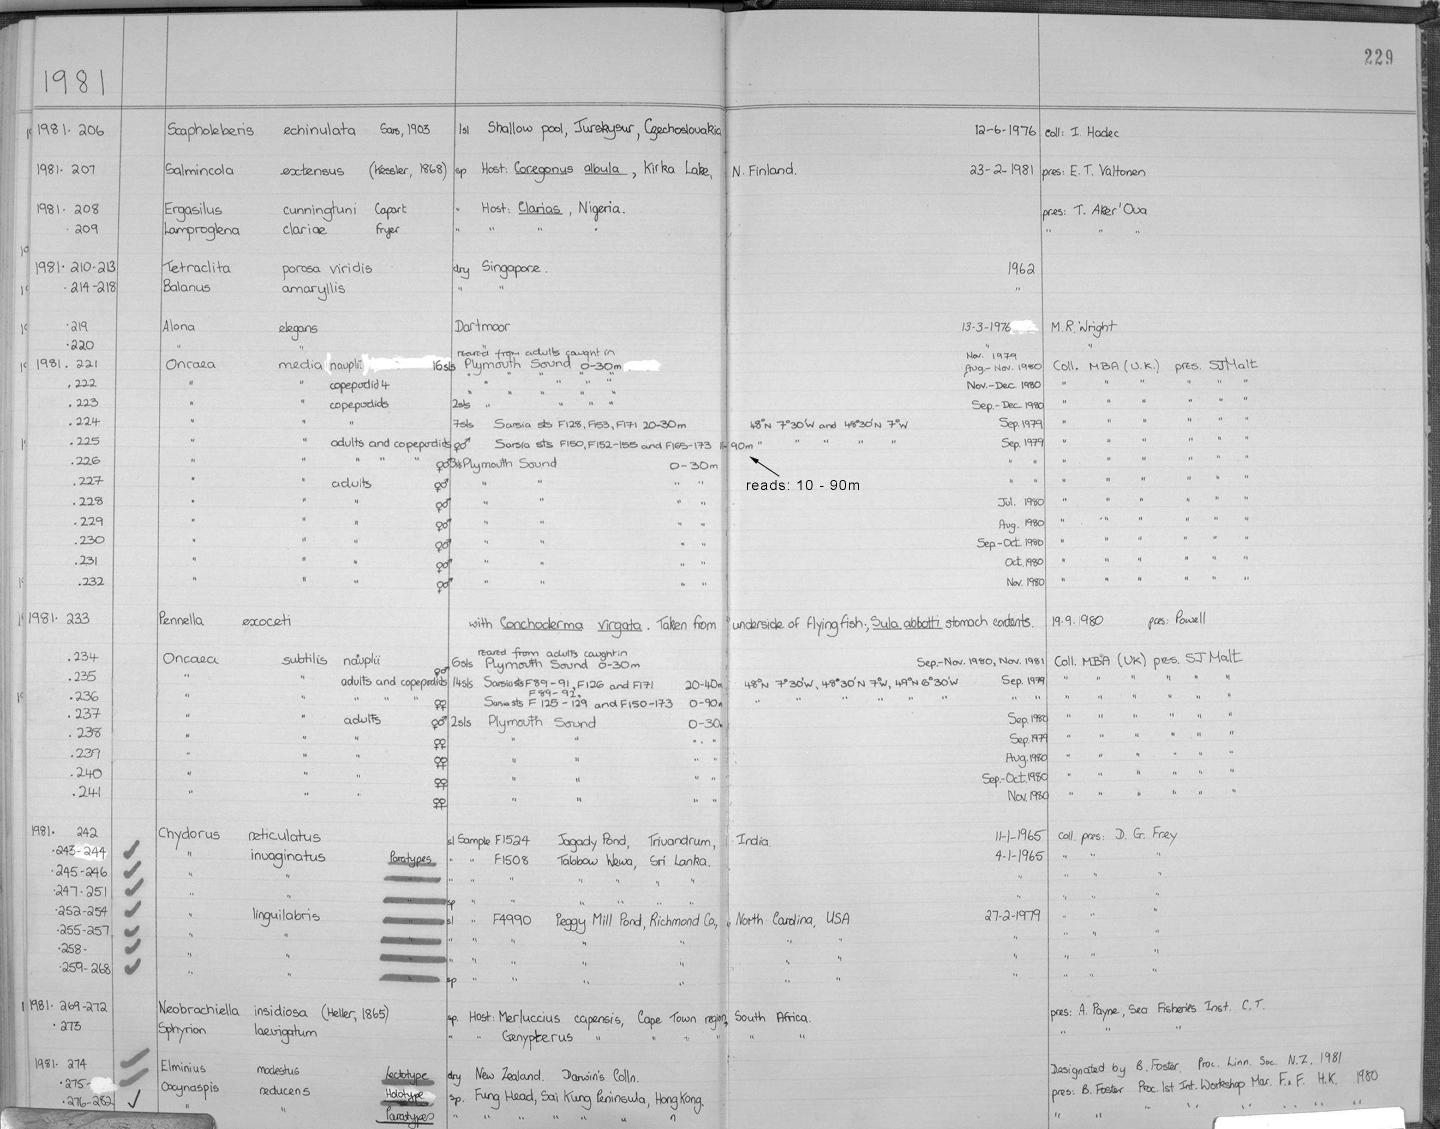 229
1981
1981. 206 Scapholeberis echinulata Sars, 1903 1sl Shallow pool, Jurskysur, Czechoslovakia 12-6-1976 coll: I. Hadec
1981. 207 Salmincola extensus (Kessler, 1868) sp Host: Coregonus albula, Kirka Lake, N. Finland. 23-2-1981 pres: E. T. Valtonen
1981. 208 Ergasilus cunningtuni Capart " Host: Clarias, Nigeria. pres: T. Aker'Ova
. 209 Lamproglena clariae Fryer " " " " " " "
1981. 210-213 Tetraclita porosa viridis dry Singapore. 1962
. 214-218 Balanus amaryllis " " "
.219 Alona elegans Dartmoor 13-3-1976 M.R. Wright
.220 " " " "
reared from adults caught in Nov. 1979
1981. 221 Oncaea media (nauplii) 16sls Plymouth Sound 0-30m Aug-Nov. 1980 Coll. MBA (U.K.) pres. SJ Malt
.222 " " copepodid 4 " " " " " Nov.-Dec. 1980 " " " " " "
.223 " " copepodids 2sls " " " " Sep.-Dec. 1980 " " " " " "
.224 " " " 7sls Sarsia sts F128, F153, F171 20-30m 48°N 7°30'W and 48°30'N 7°W Sep. 1979 " " " " " "
.225 " " adults and copepodids ♀♂ Sarsia sts F150, F152-155 and F165-173 10-90m " " " " Sep. 1979 " " " " " "
.226 " " " " " ♀♂ 3sls Plymouth Sound 0-30m " " " " " " " "
reads: 10 - 90m
.227 " " adults ♀♂ " " " " " " " " " " " "
.228 " " " ♀♂ " " " " Jul. 1980 " " " " " "
.229 " " " ♀♂ " " " " Aug. 1980 " " " " " "
.230 " " " ♀♂ " " " " Sep-Oct. 1980 " " " " " "
.231 " " " ♀♂ " " " " Oct. 1980 " " " " " "
.232 " " " ♀♂ " " " " Nov. 1980 " " " " " "
1981. 233 Pennella exoceti with Conchoderma virgata. Taken from underside of flying fish; Sula abbotti stomach contents. 19.9.1980 pres: Powell
reared from adults caught in
.234 Oncaea subtilis nauplii 6sls Plymouth Sound 0-30m Sep.-Nov. 1980, Nov. 1981 Coll. MBA (UK) pres. SJ Malt
.235 " " adults and copepodids ♀♂ 14sls Sarsia sts F89-91, F126 and F171 20-40m 48°N 7°30'W, 48°30'N 7°W, 49°N 6°30'W Sep. 1979 " " " " " "
F89-92,
.236 " " " " " ♀♀ Sarsia sts F125-129 and F150-173 0-90m " " " " " " " " " " " "
.237 " " adults ♀♂ 2sls Plymouth Sound 0-30m Sep. 1980 " " " " " "
.238 " " " ♀♀ " " " " Sep. 1979 " " " " " "
.239 " " " ♀♀ " " " " Aug. 1980 " " " " " "
.240 " " " ♀♀ " " " " Sep.-Oct. 1980 " " " " " "
.241 " " " ♀♀ " " " " Nov. 1980 " " " " " "
1981. 242 Chydorus reticulatus sl Sample F1524 Jagady Pond, Trivandrum, India. 11-1-1965 coll. pres: D. G. Frey
.243-244 " invaginatus Paratypes " " F1508 Talabow Wewa, Sri Lanka. 4-1-1965 " " "
.245-246 " " " " " " " " " " " " "
.247-251 " " " sp " " " " " " " " "
.252-254 " linguilabris " sl " F4990 Peggy Mill Pond, Richmond Co., North Carolina, USA 27-2-1979 " "
.255-257 " " " " " " " " " " " " " "
.258- " " " " " " " " " " " " " "
.259-268 " " " sp " " " " " " " " " "
1981. 269-272 Neobrachiella insidiosa (Heller, 1865) sp. Host: Merluccius capensis, Cape Town region, South Africa. pres: A. Payne, Sea Fisheries Inst. C.T.
. 273 Sphyrion laevigatum " " Genypterus " " " " " " " "
1981. 274 Elminius modestus Lectotype dry New Zealand. Darwin's Colln. Designated by B. Foster. Proc. Linn. Soc. N.Z. 1981
.275- Oxynaspis reducens Holotype sp. Fung Head, Sai Kung Peninsula, Hong Kong. pres: B. Foster Proc. 1st Int. Workshop Mar. F. & F. H.K. 1980
.276-282 " " Paratypes " " " " " " " " " " " " " "